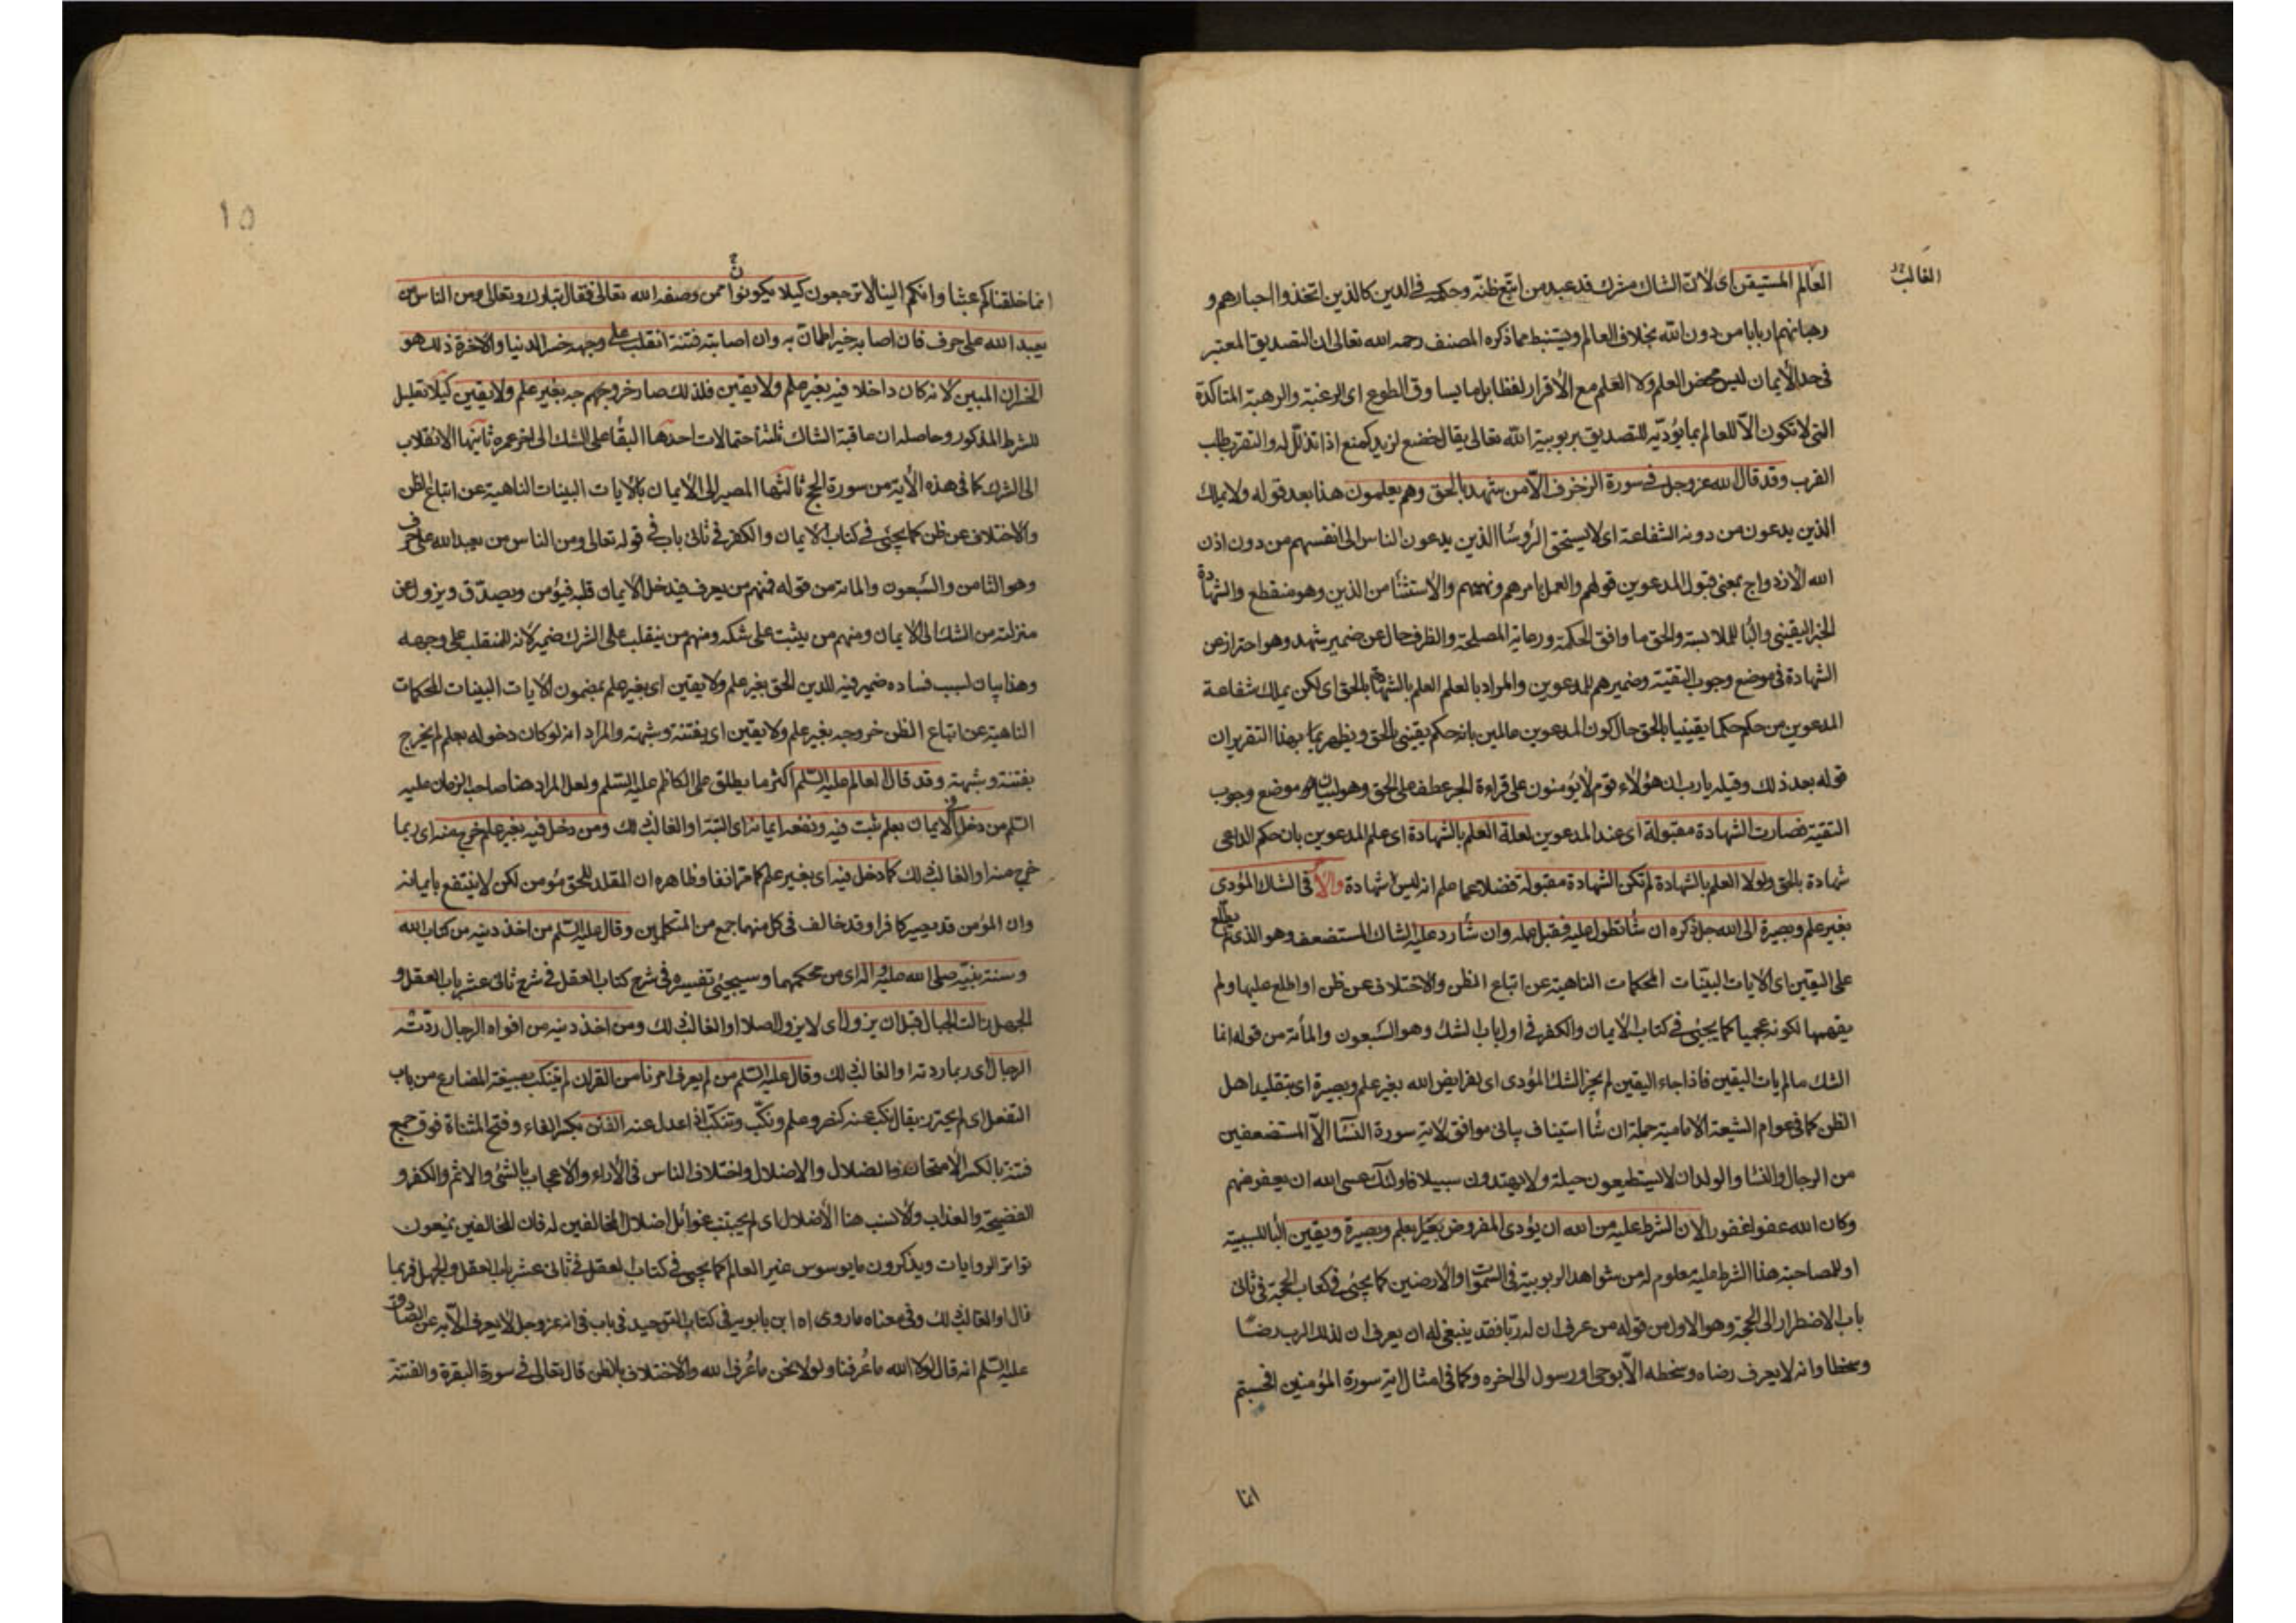 العالم المستيقن اى لان الشاك مشرك قد عبد من اتبع ظنه وحكمه فى الدين كالذين اتخذوا احبارهم و
الغالب
رهبانهم اربابا من دون الله بخلاف العالم ويستنبط مما ذكره المصنف رحمه الله تعالى ان التصديق المعتبر
فى حد الايمان ليس محض العلم ولا العلم مع الاقرار لفظا بل ما يساوق الطوع اى الرغبة والرهبة المتاكدة
التى لا تكون الا للعالم بما يؤديه للتصديق بربوبية الله تعالى يقال خضع لزيد كمنع اذا تذلل له والتقرب طلب
القرب وقد قال الله عز وجل فى سورة الزخرف الا من شهد بالحق وهم يعلمون هذا بعد قوله ولا يملك
الذين يدعون من دونه الشفاعة اى لا يستحق الرؤسا الذين يدعون الناس الى انفسهم من دون اذن
الله الازدواج بمعنى قبول المدعوين قولهم والعمل بامرهم ونهيهم والاستثنا من الذين وهو منقطع والشهادة
الخبر اليقينى والبا للملابسة والحق ما وافق الحكمة ورعاية المصلحة والظرف حال عن ضمير شهد وهو احتراز عن
الشهادة فى موضع وجوب التقية وضمير هم للمدعوين والمراد بالعلم العلم بالشهادة بالحق اى لكن يملك شفاعة
المدعوين من حكم حكما يقينيا بالحق حال كون المدعوين عالمين بانه حكم يقينى بالحق ويظهر بما بهذا التقرير ان
قوله بعد ذلك وقيله يارب ان هؤلاء قوم لا يؤمنون على قراءة الجر عطف على الحق وهو لبيان موضع وجوب
التقية فصارت الشهادة مقبولة اى عند المدعوين لعلة العلم بالشهادة اى علم المدعوين بان حكم الداعى
شهادة بالحق ولولا العلم بالشهادة لم تكن الشهادة مقبولة فضلا عما علم انه ليس شهادة والا فى الشاك المؤدى
بغير علم وبصيرة الى الله جل ذكره ان شا تطول عليه فقبل عمله وان شا رد عليه الشاك المستضعف وهو الذى لم يطلع
على اليقين اى الايات البينات المحكمات الناهية عن اتباع الظن والاختلاف عن ظن او اطلع عليها ولم
يفهمها لكونه عجميا كما يجئ فى كتاب الايمان والكفر فى اول باب الشك وهو السبعون والمأتة من قوله انما
الشك ما لم يات اليقين فاذا جاء اليقين لم يجز الشك المؤدى اى لفرايض الله بغير علم وبصيرة اى بتقليد اهل
الظن كما فى عوام الشيعة الامامية جملة ان شا استيناف بيانى موافق لاية سورة النسا الا المستضعفين
من الرجال والنسا والولدان لا يستطيعون حيلة ولا يهتدون سبيلا فاولئك عسى الله ان يعفو عنهم
وكان الله عفوا غفورا لان الشرط عليه من الله ان يؤدى المفروض بعلم وبصيرة ويقين البا للسببية
او للمصاحبة هذا الشرط عليه معلوم له من شواهد الربوبية فى السموات والارضين كما يجئ فى كتاب الحجة فى ثانى
باب الاضطرار الى الحجة وهو الاول من قوله من عرف ان له ربا فقد ينبغى له ان يعرف ان لذلك الرب رضا
وسخطا وانه لا يعرف رضاه وسخطه الا بوحى او رسول الى اخره وكما فى امثال اية سورة المؤمنين افحسبتم
انما
١٥
انما خلقناكم عبثا وانكم الينا لا ترجعون كيلا يكونوا ممن وصفه الله تعالى فقال تبارك وتعالى ومن الناس من
يعبد الله على حرف فان اصابه خير اطمان به وان اصابته فتنة انقلب على وجهه خسر الدنيا والاخرة ذلك هو
الخسران المبين لانه كان داخلا فيه بغير علم ولا يقين فلذلك صار خروجهم بغير علم ولا يقين كيلا تعليل
للشرط المذكور وحاصله ان عاقبة الشاك ثلثة احتمالات احدها البقا على الشك الى اخر عمره ثانيها الانقلاب
الى الشرك كما فى هذه الاية من سورة الحج ثالثها المصير الى الايمان بالايات البينات الناهية عن اتباع الظن
والاختلاف عن ظن كما يجئ فى كتاب الايمان والكفر فى ثانى باب فى قوله تعالى ومن الناس من يعبد الله على حرف
وهو الثامن والسبعون والماتة من قوله فمنهم من يعرف فيدخل الايمان قلبه فيؤمن ويصدق ويزول عن
منزلته من الشك الى الايمان ومنهم من يثبت على شكه ومنهم من ينقلب على الشرك ضمير لانه للمنقلب على وجهه
وهذا بيان لسبب فساده ضمير فيه للدين الحق بغير علم ولا يقين اى بغير علم بمضمون الايات البينات المحكمات
الناهية عن اتباع الظن خروجه بغير علم ولا يقين اى بفتنة وشبهة والمراد انه لو كان دخوله بعلم لم يخرج
بفتنة وشبهة وقد قال العالم عليه السلم اكثر ما يطلق على الكاظم عليه السلم ولعل المراد هنا صاحب الزمان عليه
السلم من دخل فى الايمان بعلم ثبت فيه ونفعه ايمانه اى البتة او الغالب ذلك ومن دخل فيه بغير علم خرج منه اى ربما
خرج منه او الغالب ذلك كما دخل فيه اى بغير علم كما مر انفا وظاهره ان المقلد للحق مؤمن لكن لا ينتفع بايمانه
وان المؤمن قد يصير كافرا وقد خالف فى كل منهما جمع من المتكلمين وقال عليه السلم من اخذ دينه من كتاب الله
وسنة نبيه صلى الله عليه واله اى من محكمهما وسيجئ تفسيره فى شرح كتاب العقل فى شرح ثانى عشر باب العقل و
الجهل زالت الجبال قبل ان يزول اى لا يزول اصلا او الغالب ذلك ومن اخذ دينه من افواه الرجال ردته
الرجال اى ربما ردته او الغالب ذلك وقال عليه السلم من لم يعرف امرنا من القران لم يتنكب بصيغة المضارع من باب
التفعل اى لم يحترز يقال نكب عنه كنصر وعلم ونكب وتنكب اذا عدل عنه الفتن بكسر الفاء وفتح المثناة فوق جمع
فتنة بالكسر الامتحان والضلال والاضلال واختلاف الناس فى الاراء والاعجاب بالشئ والاثم والكفر و
الفضيحة والعذاب والانسب هنا الاضلال اى لم يجتنب غوائل اضلال المخالفين له فان المخالفين يمنعون
تواتر الروايات ويذكرون ما يوسوس غير العالم كما يجئ فى كتاب العقل فى ثانى عشر باب العقل والجهل فربما
زال او الغالب ذلك وفى معناه ما رواه ابن بابويه فى كتاب التوحيد فى باب فى انه عز وجل لا يعرف الا به عن الصادق
عليه السلم انه قال لولا الله ما عرفنا ولولا نحن ما عرف الله والاختلاف بالظن قال تعالى فى سورة البقرة والفتنة